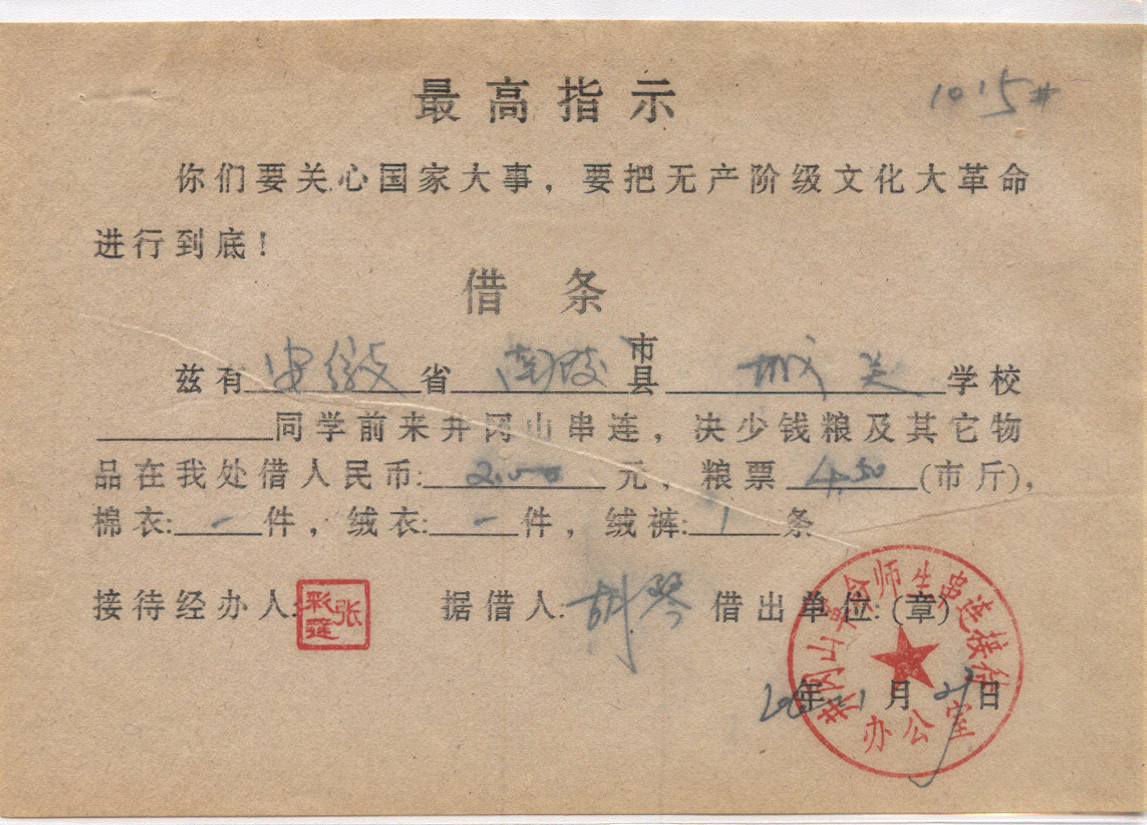 1015#
最高指示
你们要关心国家大事，要把无产阶级文化大革命
进行到底！
借条
兹有安徽省南陵市县城关学校
同学前来井冈山串连，决少钱粮及其它物
品在我处借人民币:2.00元，粮票4.50(市斤)，
棉衣:一件，绒衣:一件，绒裤:1条
接待经办人: 据借人:胡琴 借出单位:(章)
年11月21日
张彩莲
井冈山革命师生串连接待
办公室